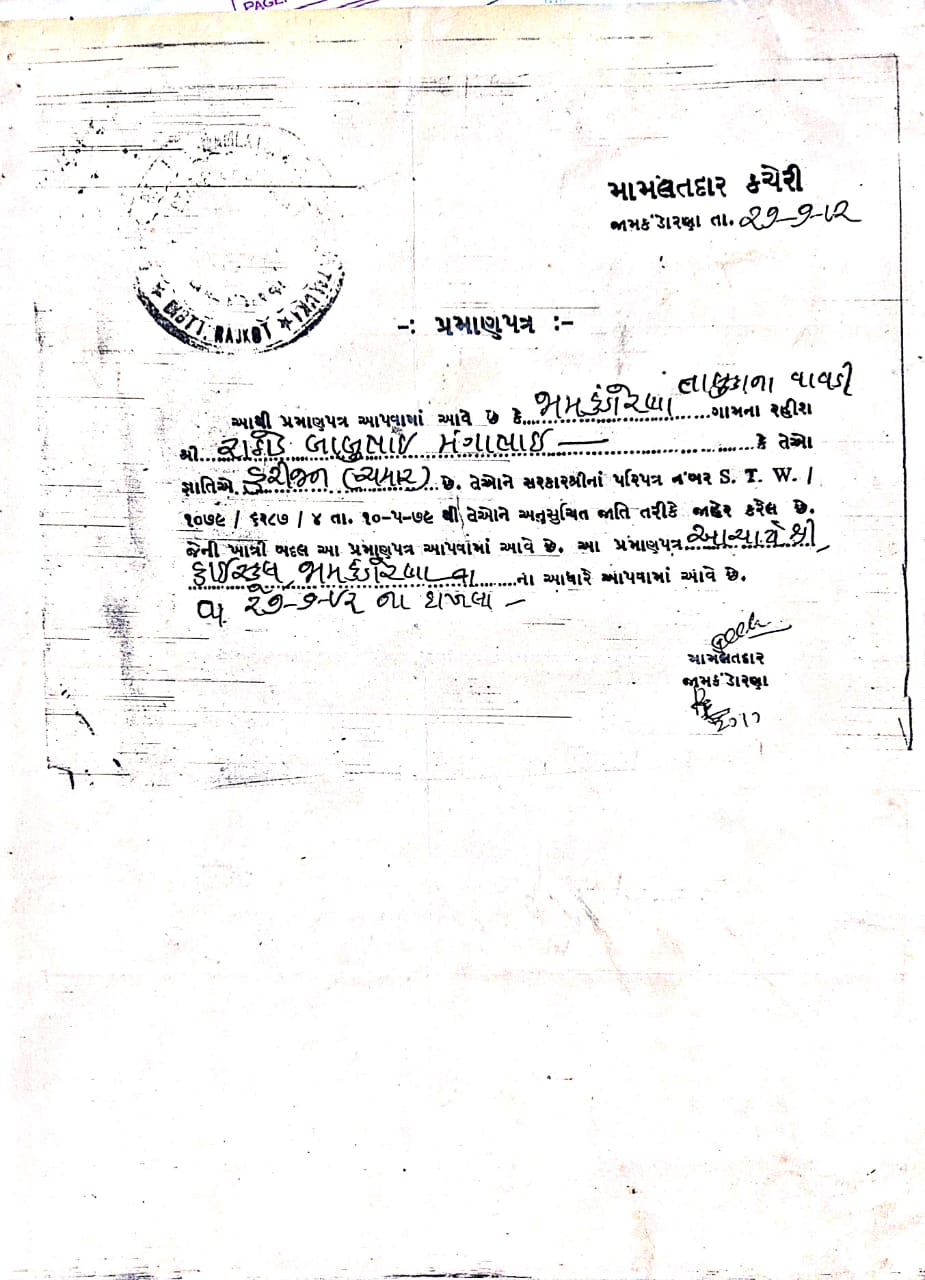 PAGE
મામલતદાર કચેરી
જામકંડોરણા તા. ૨૭-૭-૮૨
★ DISTT. RAJKOT ★ TALUKA
-: પ્રમાણપત્ર :-
તાલુકાના વાવડી
આથી પ્રમાણપત્ર આપવામાં આવે છે કે જામકંડોરણા ગામના રહીશ
શ્રી રાઠોડ બાબુભાઇ મંગાભાઇ — કે તેઓ
જ્ઞાતિએ હરીજન (ચમાર) છે. તેઓને સરકારશ્રીનાં પરિપત્ર નંબર S. T. W. /
૧૦૭૯ / ૬૨૮૭ / ૪ તા. ૧૦-૫-૭૯ થી તેઓને અનુસુચિત જાતિ તરીકે જાહેર કરેલ છે.
જેની ખાત્રી બદલ આ પ્રમાણપત્ર આપવામાં આવે છે. આ પ્રમાણપત્ર આચાર્ય શ્રી
હાઇસ્કુલ જામકંડોરણા ના ના આધારે આપવામાં આવે છે.
તા. ૨૭-૭-૮૨ ના દાખલા -
મામલતદાર
જામકંડોરણા